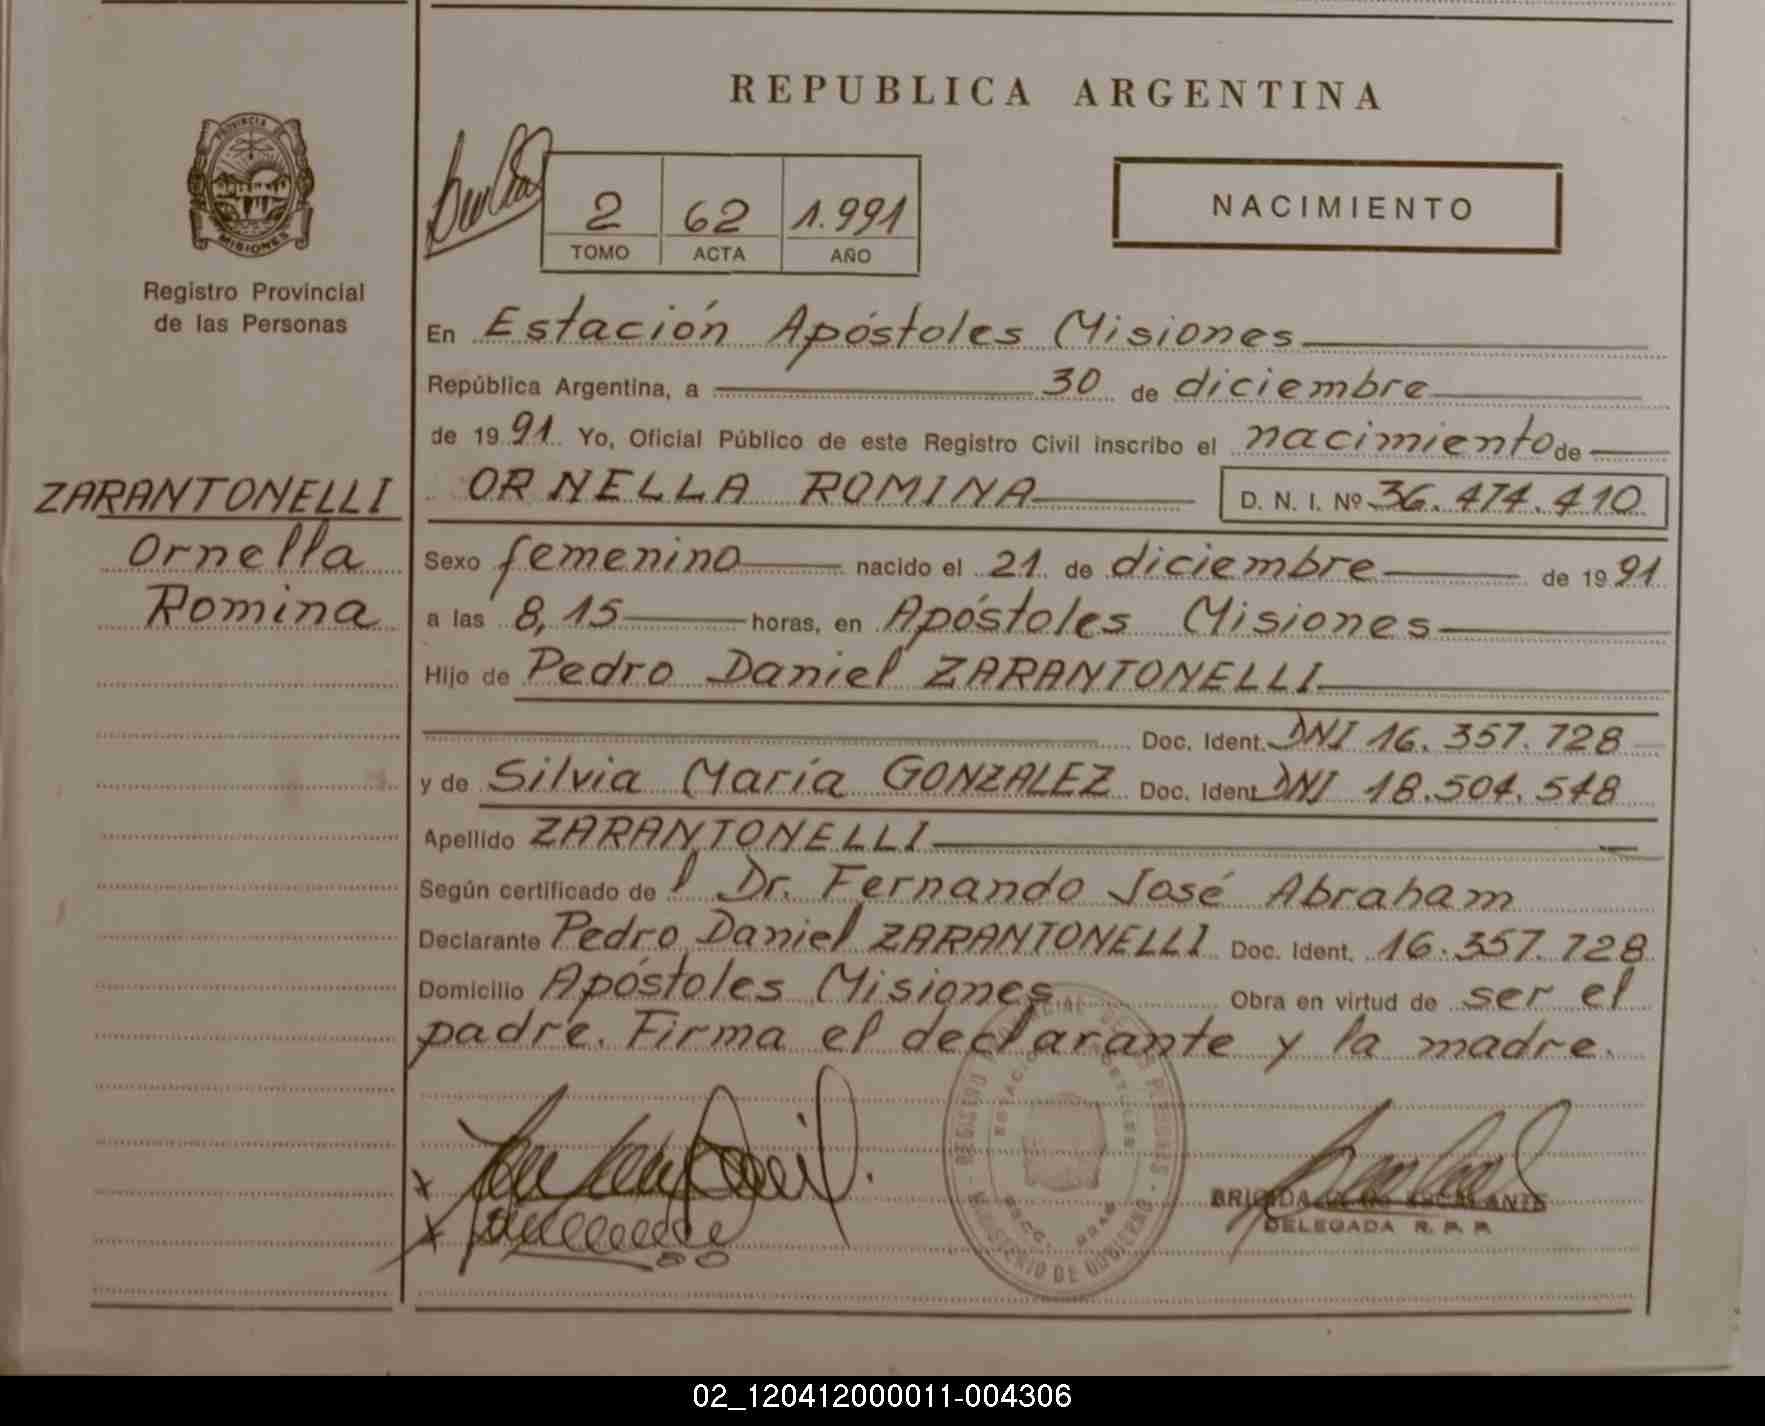 REPUBLICA ARGENTINA
PROVINCIA DE
MISIONES
Registro Provincial
de las Personas
2 62 1.991
TOMO ACTA AÑO
NACIMIENTO
En Estación Apóstoles Misiones
República Argentina, a 30 de diciembre
de 1991 Yo, Oficial Público de este Registro Civil inscribo el nacimiento de
ZARANTONELLI
Ornella
Romina
ORNELLA ROMINA D. N. I. Nº 36.474.410
Sexo femenino nacido el 21 de diciembre de 1991
a las 8,15 horas, en Apóstoles Misiones
Hijo de Pedro Daniel ZARANTONELLI
Doc. Ident. DNI 16.357.728
y de Silvia María GONZALEZ Doc. Ident DNI 18.504.548
Apellido ZARANTONELLI
Según certificado de l Dr. Fernando José Abraham
Declarante Pedro Daniel ZARANTONELLI Doc. Ident. 16.357.728
Domicilio Apóstoles Misiones Obra en virtud de ser el
padre. Firma el declarante y la madre.
REGISTRO PROVINCIAL DE LAS PERSONAS
MINISTERIO DE GOBIERNO
ESCALANTE
DELEGADA R. P. P.
02_120412000011-004306